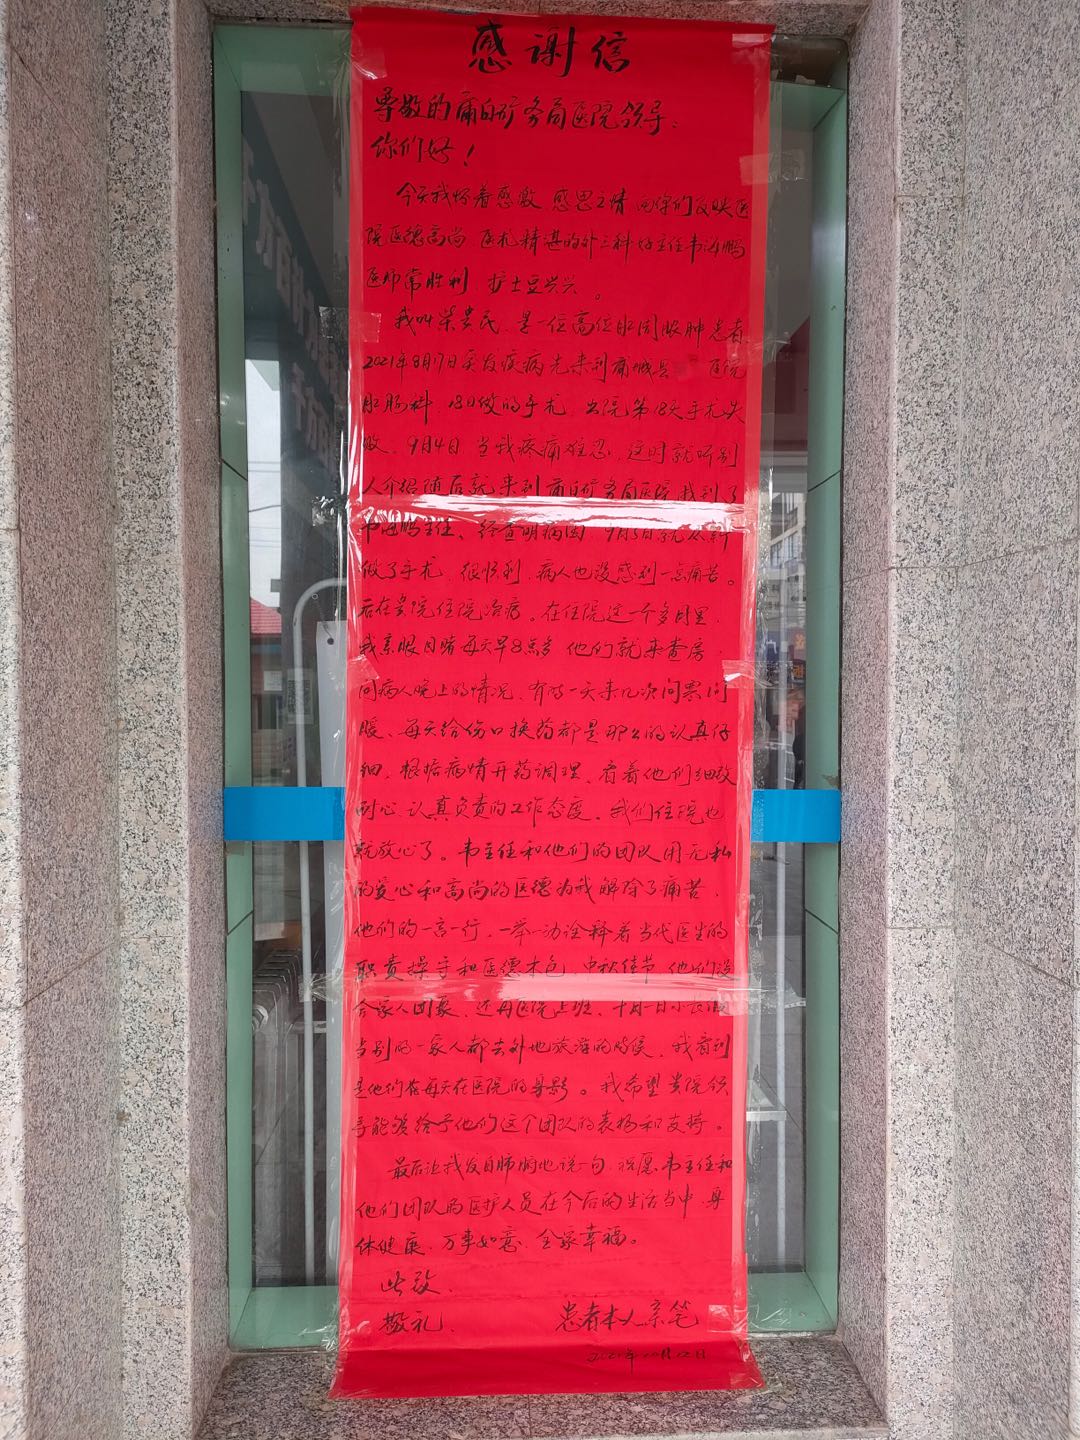 感谢信
尊敬的蒲白矿务局医院领导：
你们好！
今天我怀着感激 感恩之情 向你们反映医
院医德高尚 医术精湛的外三科好主任韦海鹏
医师常胜利 护士豆兴兴。
我叫柴贵民，是一位高位肛周脓肿患者
2021年8月17日突发疾病先来到蒲城县 医院
肛肠科，18日做的手术，出院第18天手术失
败，9月4日，当我疼痛难忍，这时就听别
人介绍随后就来到蒲白矿务局医院找到了
韦海鹏主任、经查明病因 9月5日就从新
做了手术，很顺利，病人也没感到一点痛苦。
后在贵院住院治疗。在住院这一个多月里，
我亲眼目睹每天早8点多 他们就来查房，
问病人晚上的情况、有时一天来几次问寒问
暖、每天给伤口换药都是那么的认真仔
细，根据病情开药调理，看着他们细致
耐心、认真负责的工作态度，我们住院也
就放心了。韦主任和他们的团队用无私
的爱心和高尚的医德为我解除了痛苦，
他们的一言一行，一举一动诠释着当代医生的
职责操守和医德本色，中秋佳节，他们没
合家人团聚、还再医院上班，十月一日小长假
当别的一家人都去外地旅游的时候，我看到
是他们在每天在医院的身影。我希望贵院领
导能够给予他们这个团队的表扬和支持。
最后让我发自肺腑地说一句，祝愿韦主任和
他们团队的医护人员在今后的生活当中，身
体健康、万事如意、全家幸福。
此致
敬礼
患者本人亲笔
2021年10月12日